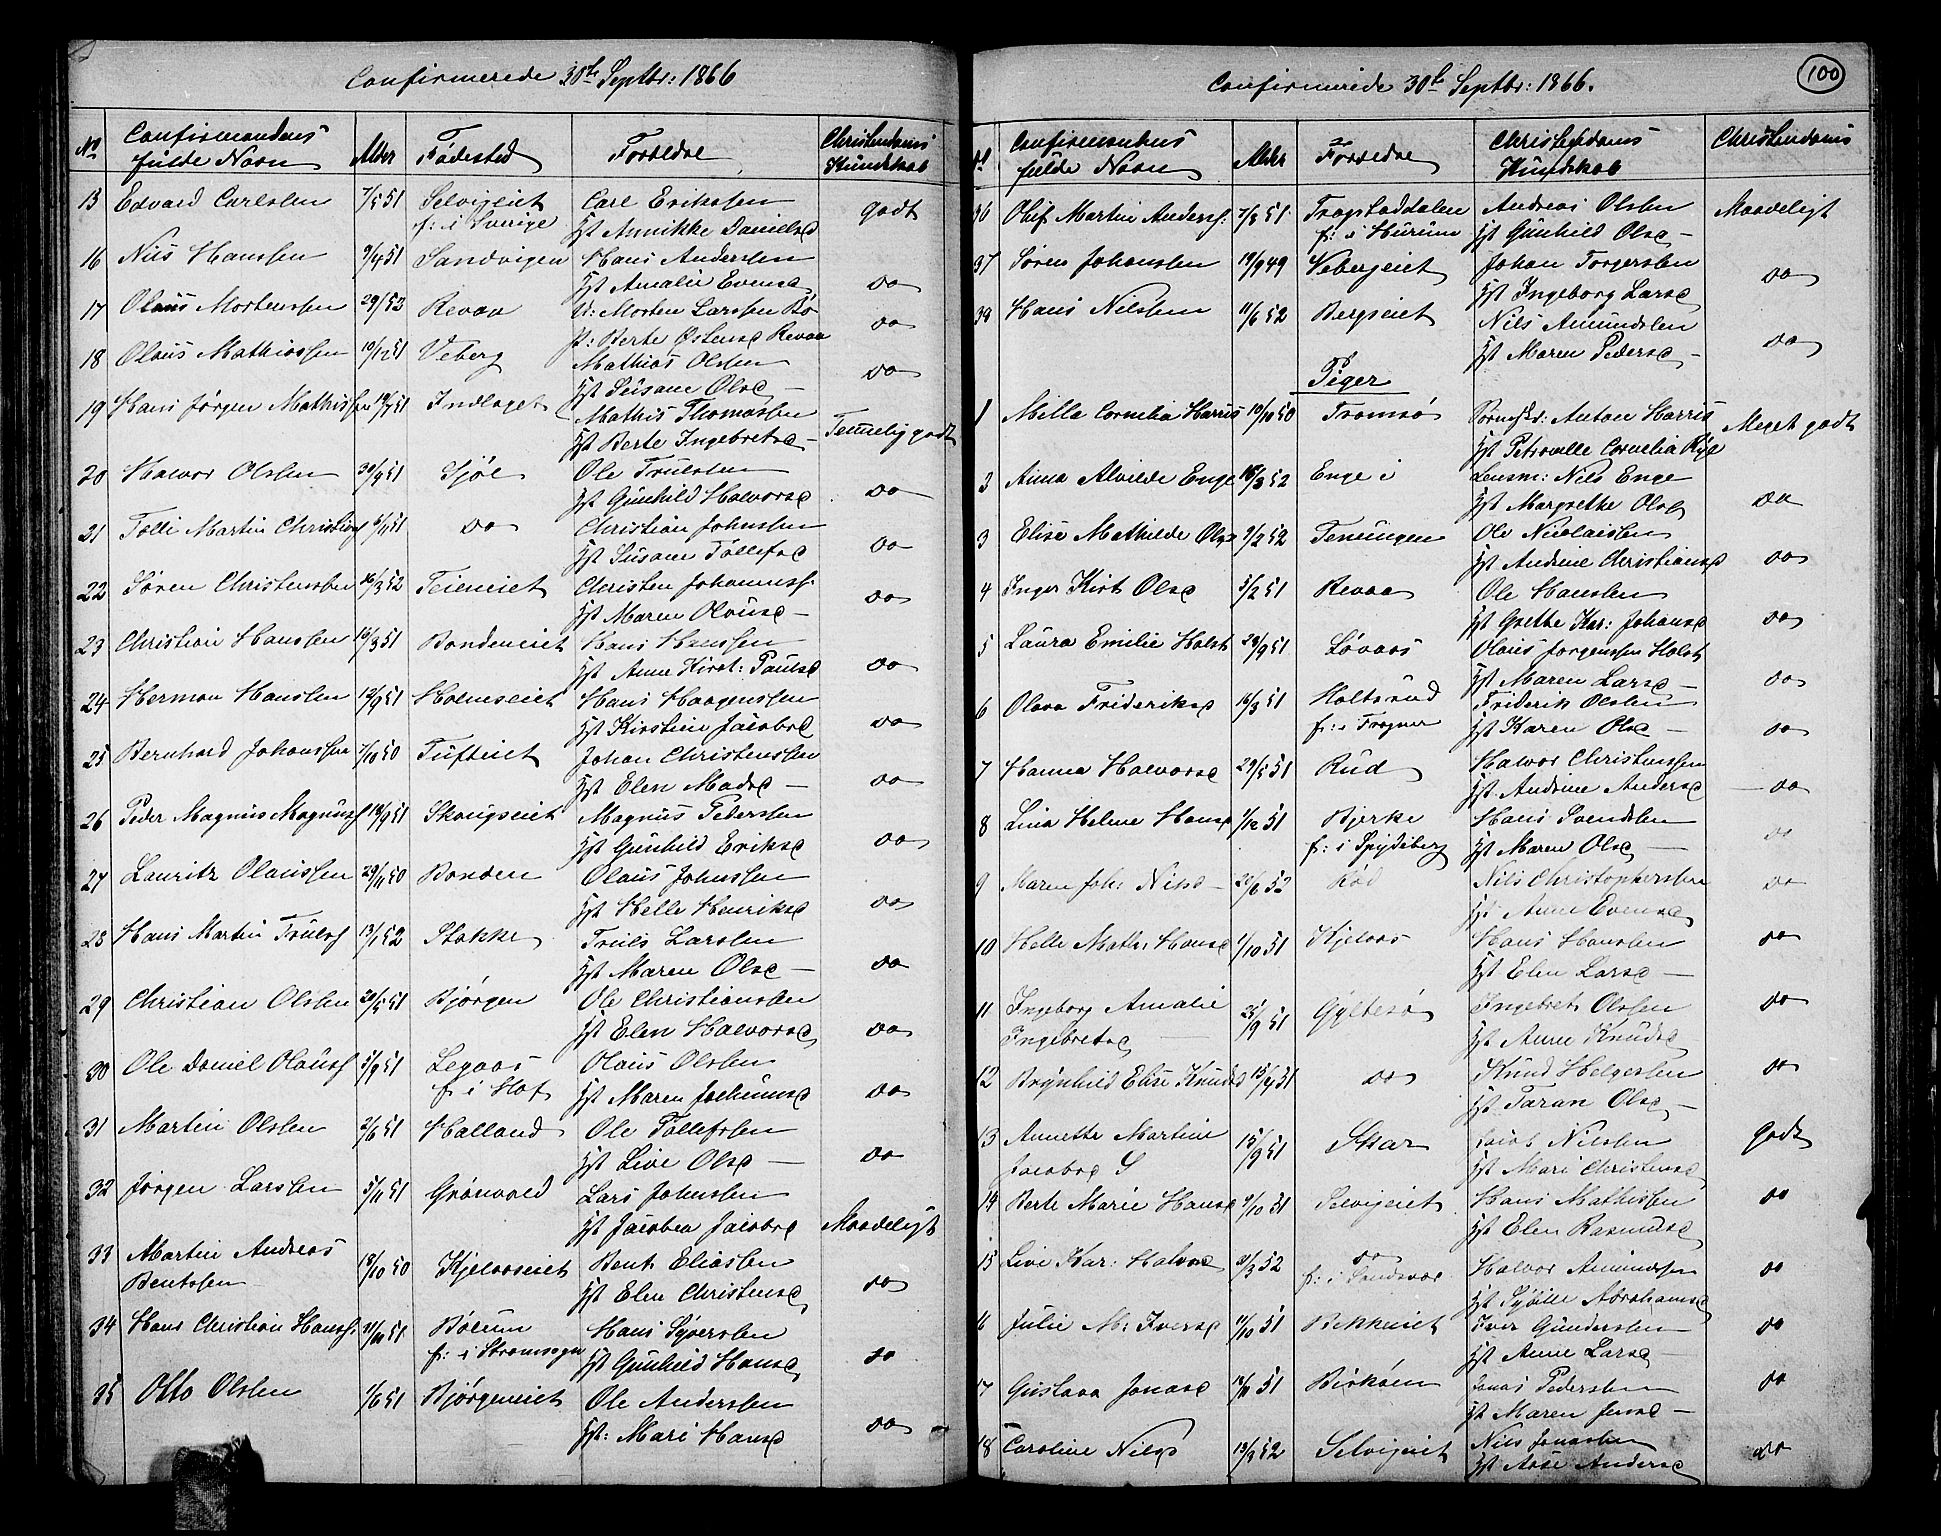 Confirmerede 30te Septbr: 1866
No Confirmandens fulde Navn Alder Fødested Forældre Christendoms Kundskab
15 Edvard Carlsen 7/5 51 Selvigeiet Carl Eriksen godt
f: i Sverige Hst Annikke Danielsd
16 Nils Hanssen 9/4 51 Sandvigen Hans Anderssen
Hst Amalie Evensd do
17 Olaus Mortenssen Revaa U: Morten Larssen Bø do
P: Berte Østensd Revaa
18 Olaus Mathiassen 10/12 51 Veberg Mathias Olsen
Hst Susane Olsd — do
19 Hans Jørgen Mathissen Indlaget Mathis Thomassen
Hst Berte Ingebretsd — Temmelig godt
20 Halvor Olssen 30/9 51 Sjøl Ole Trulssen
Hst Gunhild Halvorsd do
21 Tolli Martin Christians do Christian Johnssen
Hst Susane Tollefsd do
22 Søren Christenssen 16/3 52 Teieneiet Christen Johanness:
Hst Maren Olausd — do
23 Christian Hanssen 16/3 51 Bondeneiet Hans Hanssen
Hst Anne Kirst: Paulsd do
24 Herman Hanssen 12/9 51 Holmseiet Hans Haagenssen
Hst Kirstine Jacobsd do
25 Bernhard Johanssen 7/10 50 Tufteiet Johan Christenssen
Hst Elen Madsd — do
26 Peder Magnus Magnuss 18/9 51 Skougseiet Magnus Pederssen
Hst Gunhild Eriksd do
27 Lauritz Olaussen 29/11 50 Bonden Olaus Johnssen
Hst Helle Henriksd do
28 Hans Martin Truls 13/1 52 Stokke Truls Larssen
Hst Maren Olsd — do
29 Christian Olssen 20/5 51 Bjørgen Ole Christianssen
Hst Elen Halvorsd do
30 Ole Daniel Olauss 5/9 51 Legaas Olaus Olssen
f: i Hof Hst Maren Jochumsd do
31 Martin Olssen 2/6 51 Halland Ole Tollefssen
Hst Live Olsd — do
32 Jørgen Larssen 5/11 51 Grønvold Lars Johnssen
Hst Jacobea Jacobsd Maadeligt
33 Martin Andreas Bentssen 18/10 50 Kjelaaseiet Bent Eliassen
Hst Elen Christensd do
34 Hans Christian Hanss: Børum Hans Syverssen
f: i Strømsogn Hst Gunhild Hansd do
35 Otto Olssen 1/6 51 Bjørgeneiet Ole Anderssen
Hst: Mari Hansd do
100
Confirmerede 30te Septbr: 1866.
No Confirmandens fulde Navn Alder Forældre Christendoms Kundskab Christendoms
36 Oluf Martin Anderss: 7/8 51 Trogstaddalen Andreas Olssen Maadeligt
f: i Hurum Hst Gunhild Olsd —
37 Søren Johanssen 19/9 49 Vebergeiet Johan Torgerssen do
Hst Ingeborg Larsd
38 Hans Nilssen 11/6 52 Bergseiet Nils Amundssen
Hst Maren Pedersd — do
Piger
1 Mille Cornelia Harris 10/10 50 Tromsø Anton Harris Meget godt
Hst Petronille Cornelia
2 Anna Alvilde Enge 16/3 52 Enge i Lensm: Nils Enge
Hst Margrethe Olsd do
3 Elise Mathilde Olsd 9/2 52 Teningen Ole Nicolaissen
Hst Andrine Christiansd do
4 Inger Kirst Olsd 5/2 51 Revaa Ole Hanssen
Hst Grethe Kar: Johansd do
5 Laura Emilie Holst 29/9 51 Løvaas Olaus Jørgenssen Holst
Hst Maren Larsd — do
6 Olava Frideriksd 16/3 51 Holtsrud Friderik Olssen
f: i Frogner Hst Karen Olsd — do
7 Hanna Halvorsd 29/5 51 Rud Halvor Christenssen
Hst. Andrine Andersd — do
8 Lina Helene Hansd 1/12 51 Bjerke Hans Svendssen
f: i Spydeberg Hst Maren Olsd — do
9 Maren Joh: Nilsd — 22/6 52 Rød Nils Christopherssen
Hst Anne Evensd do
10 Helle Math: Hansd 1/10 51 Kjelaas Hans Hanssen do
Hst Elen Larsd —
11 Ingeborg Amalie Ingebretsd 25/9 51 Gyltesø Ingebret Olssen do
Hst Anne Knudsd
12 Brynhild Elise Knudsd 15/4 51 do Knud Helgessen do
Hst Taran Olsd —
13 Annette Martine Jacobsd S 15/9 51 Skar Jacob Nilssen godt
Hst Mari Christensd
14 Berte Marie Hansd 9/10 51 Selvigeiet Hans Mathissen do
Hst Elen Rasmusd
15 Live Kar: Halvorsd 21/3 52 do Halvor Amundssen do
f: i Sandsvær Hst Sybille Abrahamsd
16 Julie M: Iversd 11/10 51 Bekkeeiet Iver Gunderssen do
Hst Anne Larsd —
17 Gustava Jonasd 12/11 51 Birkøen Jonas Pederssen do
Hst Maren Jensd —
18 Caroline Nilsd 13/2 52 Selvigeiet Nils Jonassen do
Hst Aase Andersd